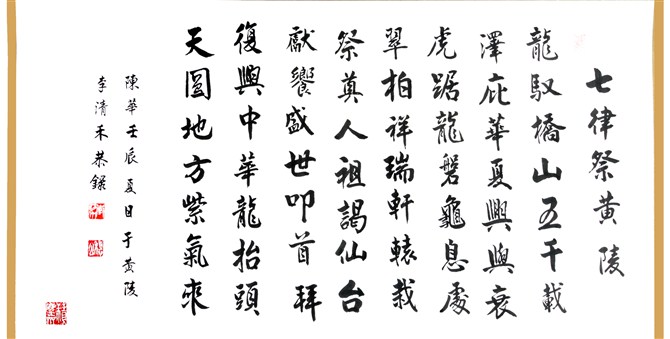 七律祭黄陵
龍馭橋山五千載
澤庇華夏興與衰
虎踞龍磐龜息處
翠柏祥瑞軒轅栽
祭奠人祖謁仙台
獻饗盛世叩首拜
復興中華龍抬頭
天圓地方紫氣來
陳華壬辰夏日于黄陵
李清禾恭錄